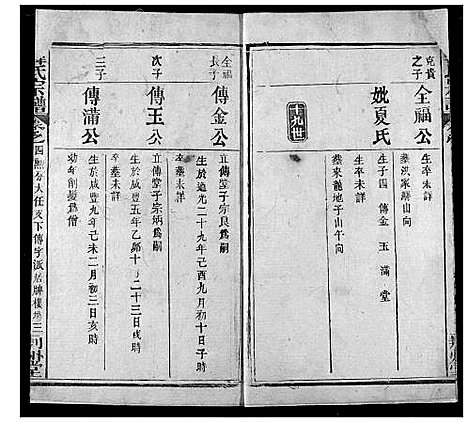 克貴
之子
全福公
生卒未詳
葬洪家瀝山向
妣夏氏
生子四 傳金 玉 滿 堂
葬來龍地子山午向
十九世
全福
長子
傳金公
生於道光二十九年己酉九月初十日子時
立傳堂子宗良為嗣
次子
傳玉公
立傳堂子宗炳為嗣
生於咸豐五年乙卯十月二十三日戌時
卒葬未詳
三子
傳滿公
生於咸豐九年己未二月初三日亥時
幼年削髮為僧
氏宗譜
卷之四